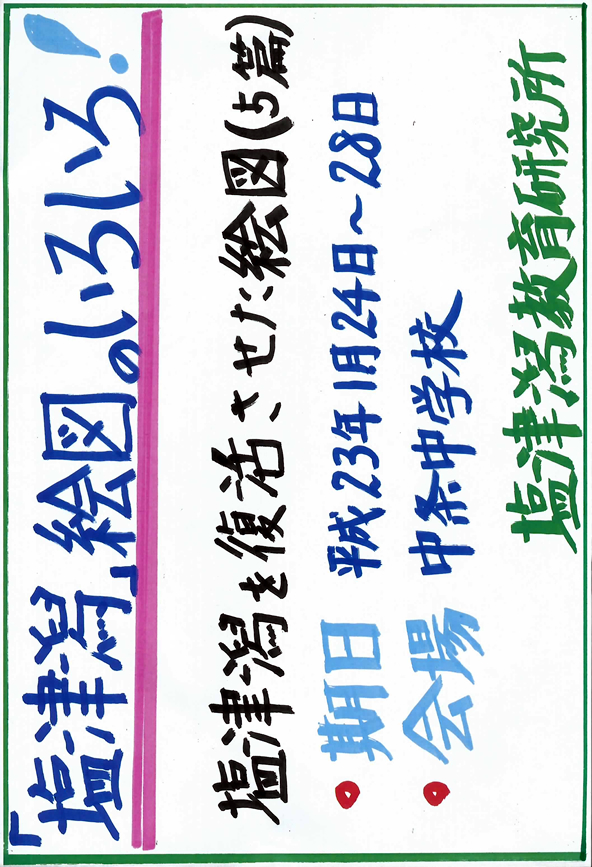 「塩津潟」絵図のいろいろ!
塩津潟を復活させた絵図(5篇)
● 期日 平成23年1月24日～28日
● 会場 中条中学校
塩津潟教育研究所